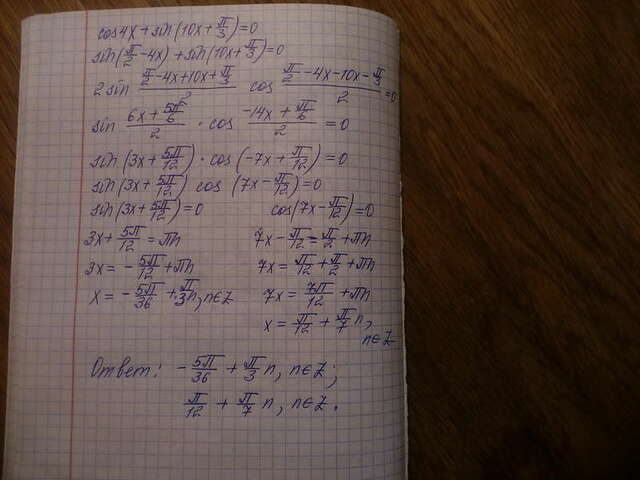 cos4x+sin(10x+π/3)=0
sin(π/2-4x)+sin(10x+π/3)=0
2sin (π/2-4x+10x+π/3)/2 cos (π/2-4x-10x-π/3)/2=0
sin (6x+5π/6)/2 · cos (-14x+π/6)/2=0
sin(3x+5π/12)·cos(-7x+π/12)=0
sin(3x+5π/12) cos(7x-π/12)=0
sin(3x+5π/12)=0 cos(7x-π/12)=0
3x+5π/12=πn 7x-π/12=π/2+πn
3x=-5π/12+πn 7x=π/12+π/2+πn
x=-5π/36+π/3n, n∈Z 7x=7π/12+πn
x=π/12+π/7n, n∈Z
Ответ: -5π/36+π/3 n, n∈Z;
π/12+π/7 n, n∈Z.